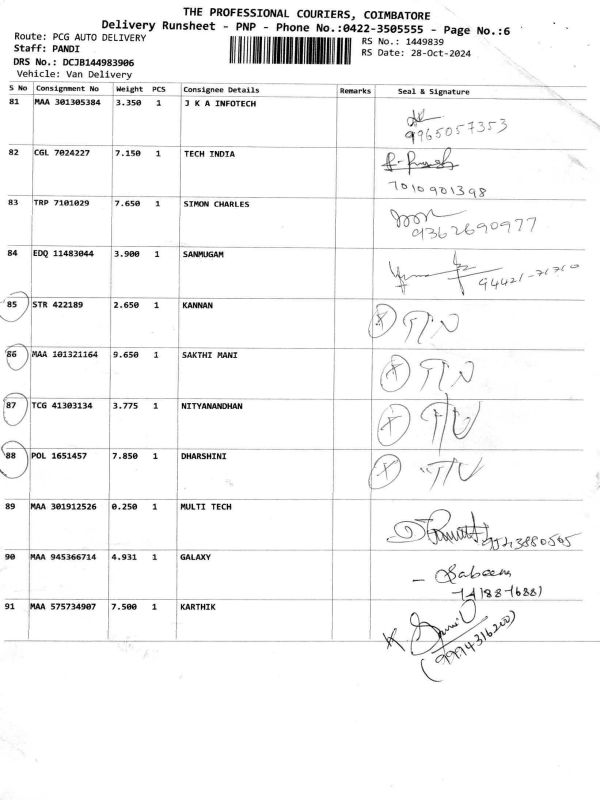 THE PROFESSIONAL COURIERS, COIMBATORE
Delivery Runsheet - PNP - Phone No.:0422-3505555 - Page No.:6
Route: PCG AUTO DELIVERY
RS No.: 1449839
Staff: PANDI
RS Date: 28-Oct-2024
DRS No.: DCJB144983906
Vehicle: Van Delivery
S No Consignment No Weight PCS Consignee Details Remarks Seal & Signature
81 MAA 301305384 3.350 1 J K A INFOTECH
9965057353
82 CGL 7024227 7.150 1 TECH INDIA
7010901398
83 TRP 7101029 7.650 1 SIMON CHARLES
9362690977
84 EDQ 11483044 3.900 1 SANMUGAM
85 STR 422189 2.650 1 KANNAN
86 MAA 101321164 9.650 1 SAKTHI MANI
87 TCG 41303134 3.775 1 NITYANANDHAN
88 POL 1651457 7.850 1 DHARSHINI
89 MAA 301912526 0.250 1 MULTI TECH
90 MAA 945366714 4.931 1 GALAXY
- Sabeena
91 MAA 575734907 7.500 1 KARTHIK
(9994316200)